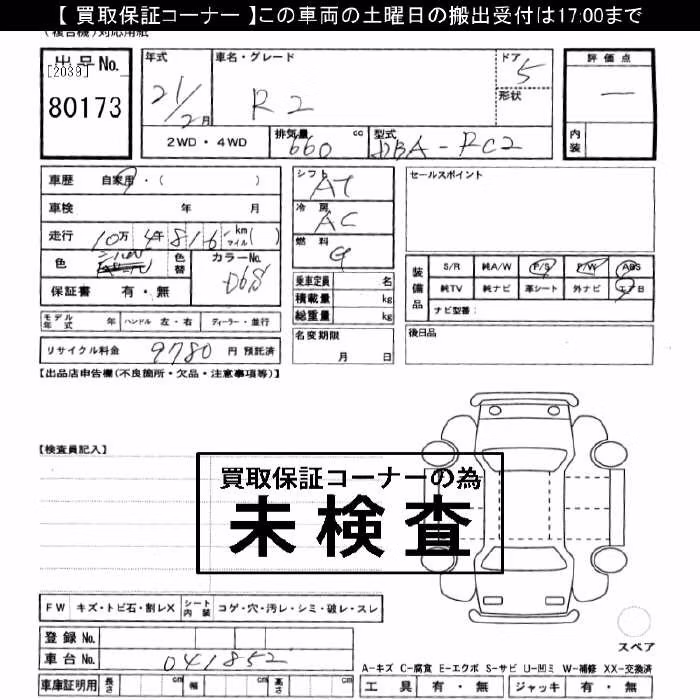 【 買取保証コーナー 】この車両の土曜日の搬出受付は17:00まで
(複合機)対応用紙
出品No.
[2039]
80173
年式
21/2月
車名・グレード
R2
ドア
5
形状
評価点
—
内装
2WD・4WD
排気量 660 cc
型式 DBA-RC2
車歴 自家用・( )
車検 年 月
走行 10万4千816 km マイル( )
色
色替
カラーNo.
D6S
保証書 有・無
シフト AT
冷房 AC
燃料 G
乗車定員 名
積載量 kg
総重量 kg
セールスポイント
装備品
S/R 純A/W P/S P/W ABS
純TV 純ナビ 革シート 外ナビ エアB
ナビ型番:
モデル年式 年 ハンドル 左・右 ディーラー・並行
名変期限
月 日
後日品
リサイクル料金 9780 円 預託済
【出品店申告欄(不良箇所・欠品・注意事項等)】
【検査員記入】
買取保証コーナーの為
未検査
FW キズ・トビ石・割レX シート内装 コゲ・穴・汚レ・シミ・破レ・スレ
登録No.
車台No. 041852
スペア
A-キズ C-腐食 E-エクボ S-サビ U-凹ミ W-補修 XX-交換済
車庫証明用 長さ cm 幅 cm 高さ cm
工具 有・無 ジャッキ 有・無